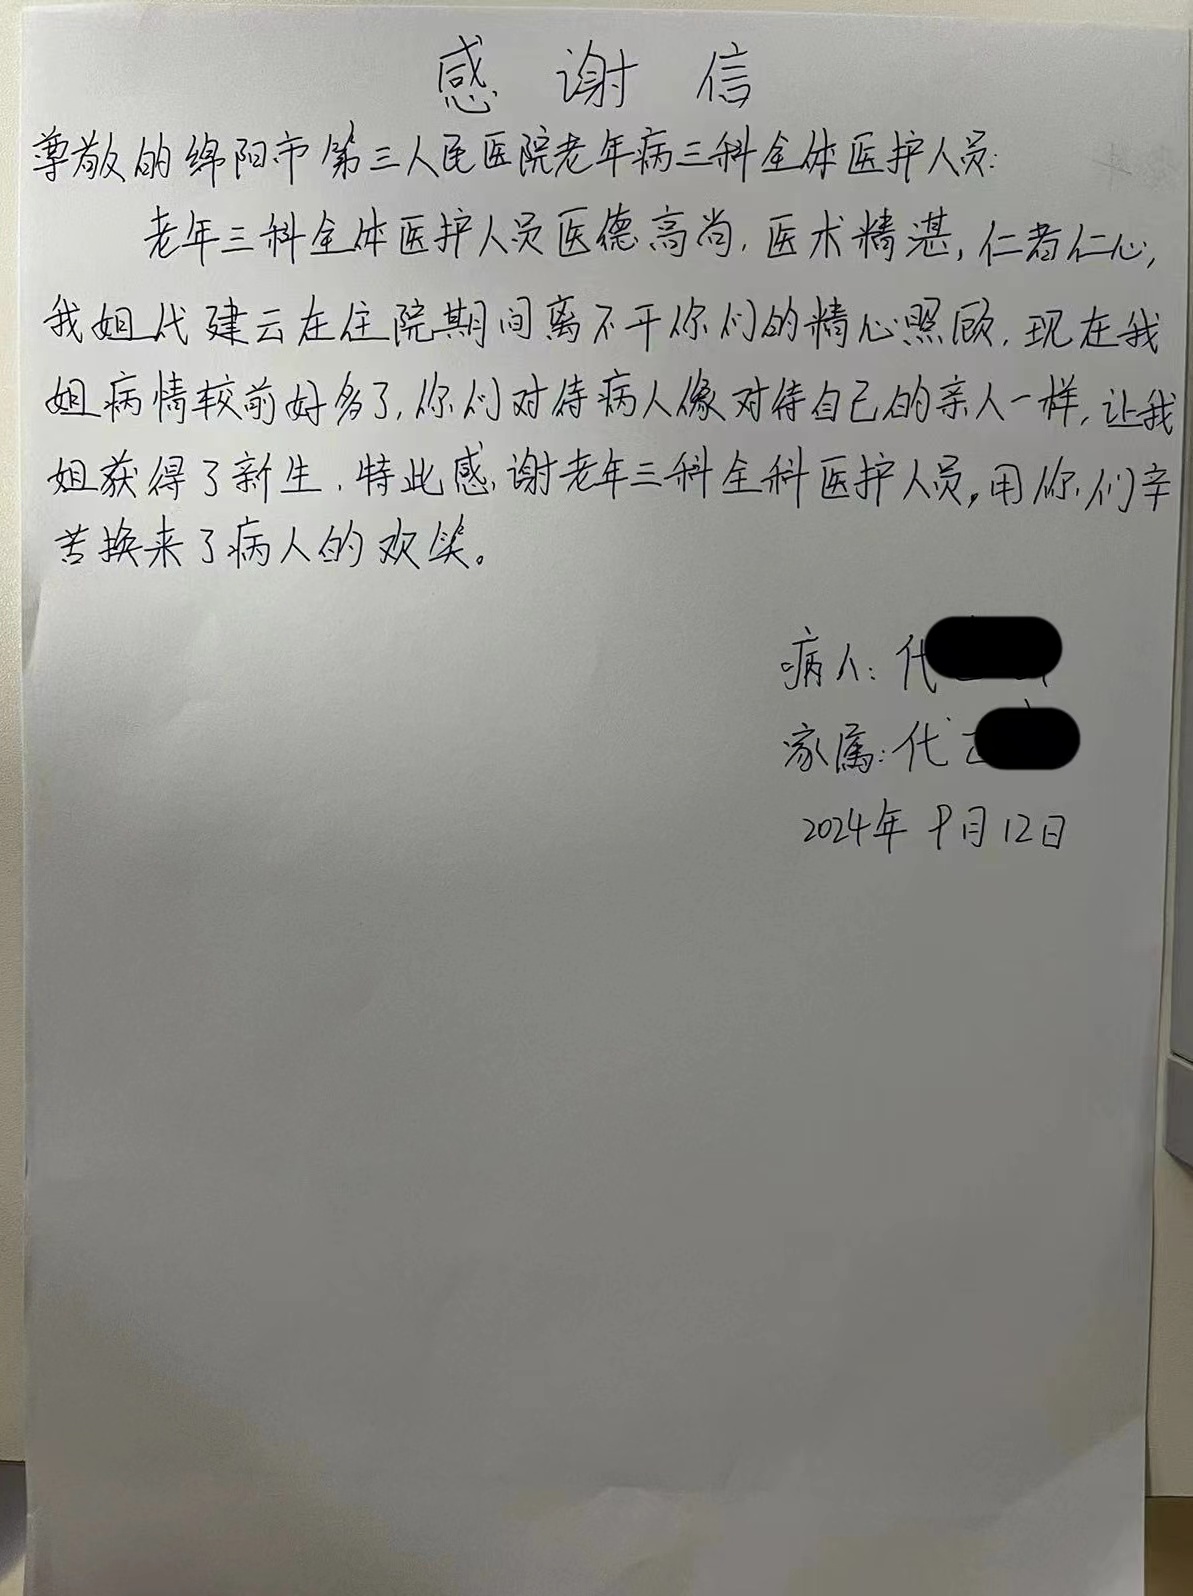 感谢信
尊敬的绵阳市第三人民医院老年病三科全体医护人员:
老年三科全体医护人员医德高尚,医术精湛,仁者仁心,
我姐代建云在住院期间离不干你们的精心照顾,现在我
姐病情较前好多了,你们对待病人像对待自己的亲人一样,让我
姐获得了新生,特此感谢老年三科全科医护人员,用你们辛
苦换来了病人的欢笑。
病人:代
家属:代
2024年9月12日